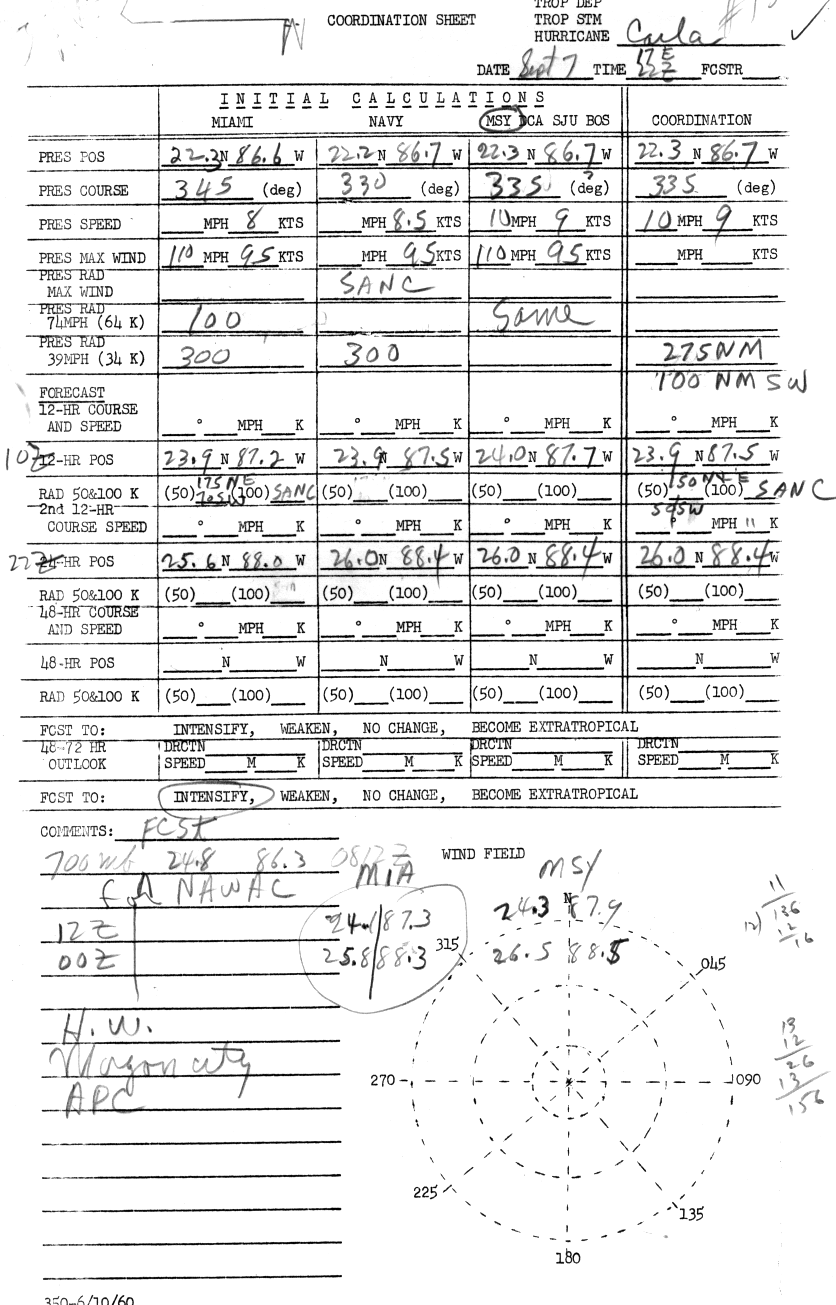 TROP DEP
COORDINATION SHEET TROP STM
HURRICANE Carla
DATE Sept 7 TIME 17E 22Z FCSTR
INITIAL CALCULATIONS
MIAMI NAVY MSY DCA SJU BOS COORDINATION
PRES POS 22.3N 86.6 W 22.2N 86.7 W 22.3 N 86.7 W 22.3 N 86.7 W
PRES COURSE 345 (deg) 330 (deg) 335 (deg) 335 (deg)
PRES SPEED MPH 8 KTS MPH 8.5 KTS 10 MPH 9 KTS 10 MPH 9 KTS
PRES MAX WIND 110 MPH 95 KTS MPH 95 KTS 110 MPH 95 KTS MPH KTS
PRES RAD
MAX WIND SANC
PRES RAD
74MPH (64 K) 100 Same
PRES RAD
39MPH (34 K) 300 300 275NM
100 NM SW
FORECAST
12-HR COURSE
AND SPEED ° MPH K ° MPH K ° MPH K ° MPH K
10Z 12-HR POS 23.9 N 87.2 W 23.9N 87.5W 24.0 N 87.7 W 23.9 N 87.5 W
RAD 50&100 K (50) 175NE 70SW (100) SANC (50) (100) (50) (100) (50) 150 N+E (100) SANC
2nd 12-HR
COURSE SPEED ° MPH K ° MPH K ° MPH K ° MPH 11 K
22Z 24-HR POS 25.6 N 88.0 W 26.0N 88.4 W 26.0 N 88.4 W 26.0 N 88.4 W
RAD 50&100 K (50) (100) (50) (100) (50) (100) (50) (100)
48-HR COURSE
AND SPEED ° MPH K ° MPH K ° MPH K ° MPH K
48-HR POS N W N W N W N W
RAD 50&100 K (50) (100) (50) (100) (50) (100) (50) (100)
FCST TO: INTENSIFY, WEAKEN, NO CHANGE, BECOME EXTRATROPICAL
48-72 HR DRCTN DRCTN DRCTN DRCTN
OUTLOOK SPEED M K SPEED M K SPEED M K SPEED M K
FCST TO: INTENSIFY, WEAKEN, NO CHANGE, BECOME EXTRATROPICAL
COMMENTS: FCST
700 mb 24.8 86.3 0812Z WIND FIELD
for NAWAC MIA MSY
N
12Z 24.1 87.3 24.3 87.9
00Z 25.8 88.3 26.5 88.5
315 045
H.W.
Morgan city
APC
270 090
225 135
180
11
12) 136
12
16
13
12
26
13
156
350-6/10/60